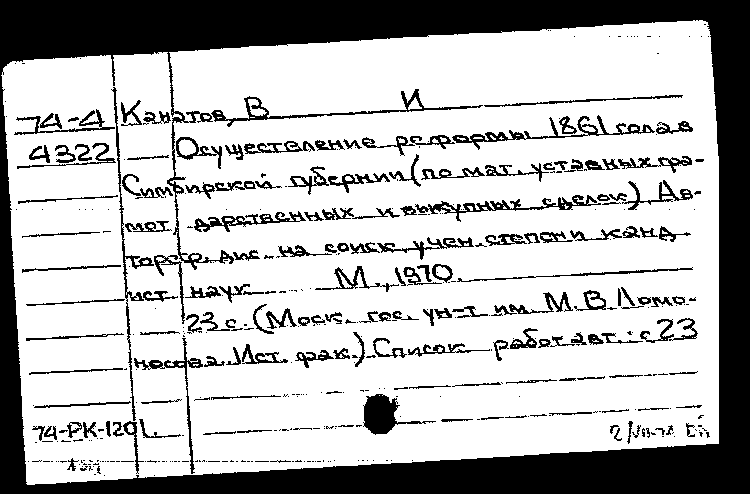 74-4 Канатов, В И
4322 Осуществление реформы 1861 года в
Симбирской губернии (по мат. уставных гра-
мот, дарственных и выкупных сделок) Ав-
тореф. дис. на соиск. учен. степени канд.
ист. наук М., 1970.
23 с. (Моск. гос. ун-т им. М. В Ломо-
носова. Ист. фак.) Список работ авт.: с 23
74-РК-1201.